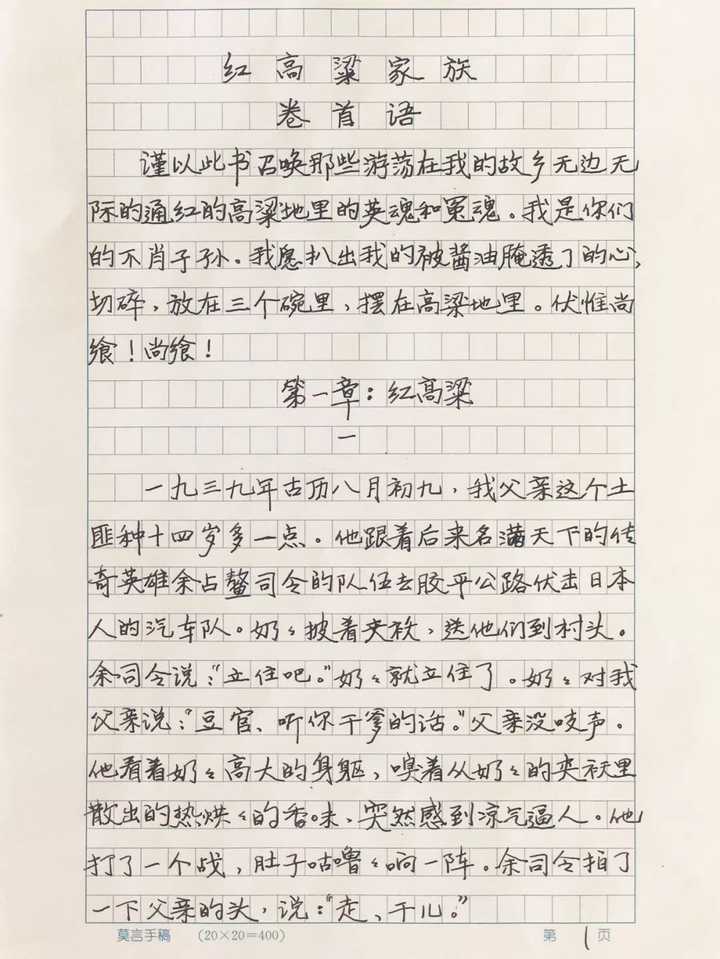 红高粱家族
卷首语
谨以此书召唤那些游荡在我的故乡无边无
际的通红的高粱地里的英魂和冤魂。我是你们
的不肖子孙。我愿扒出我的被酱油腌透了的心,
切碎,放在三个碗里,摆在高粱地里。伏惟尚
飨!尚飨!
第一章:红高粱
一
一九三九年古历八月初九,我父亲这个土
匪种十四岁多一点。他跟着后来名满天下的传
奇英雄余占鳌司令的队伍去胶平公路伏击日本
人的汽车队。奶々披着夹袄,送他们到村头。
余司令说:“立住吧。”奶々就立住了。奶々对我
父亲说:“豆官、听你干爹的话。”父亲没吱声。
他看着奶々高大的身躯,嗅着从奶々的夹袄里
散出的热烘々的香味、突然感到凉气逼人。他
打了一个战,肚子咕噜々响一阵。余司令拍了
一下父亲的头,说:“走、干儿。”
莫言手稿 (20×20=400) 第1页